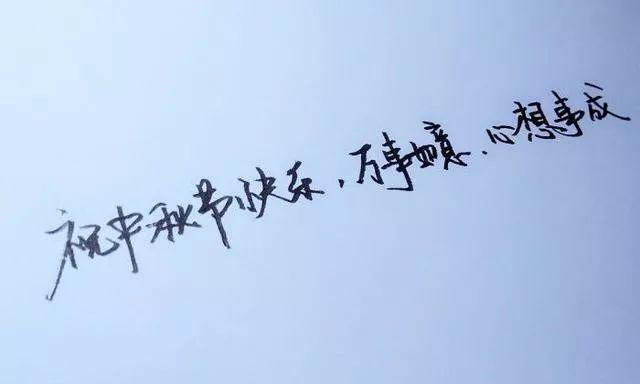 祝中秋节快乐、万事如意、心想事成